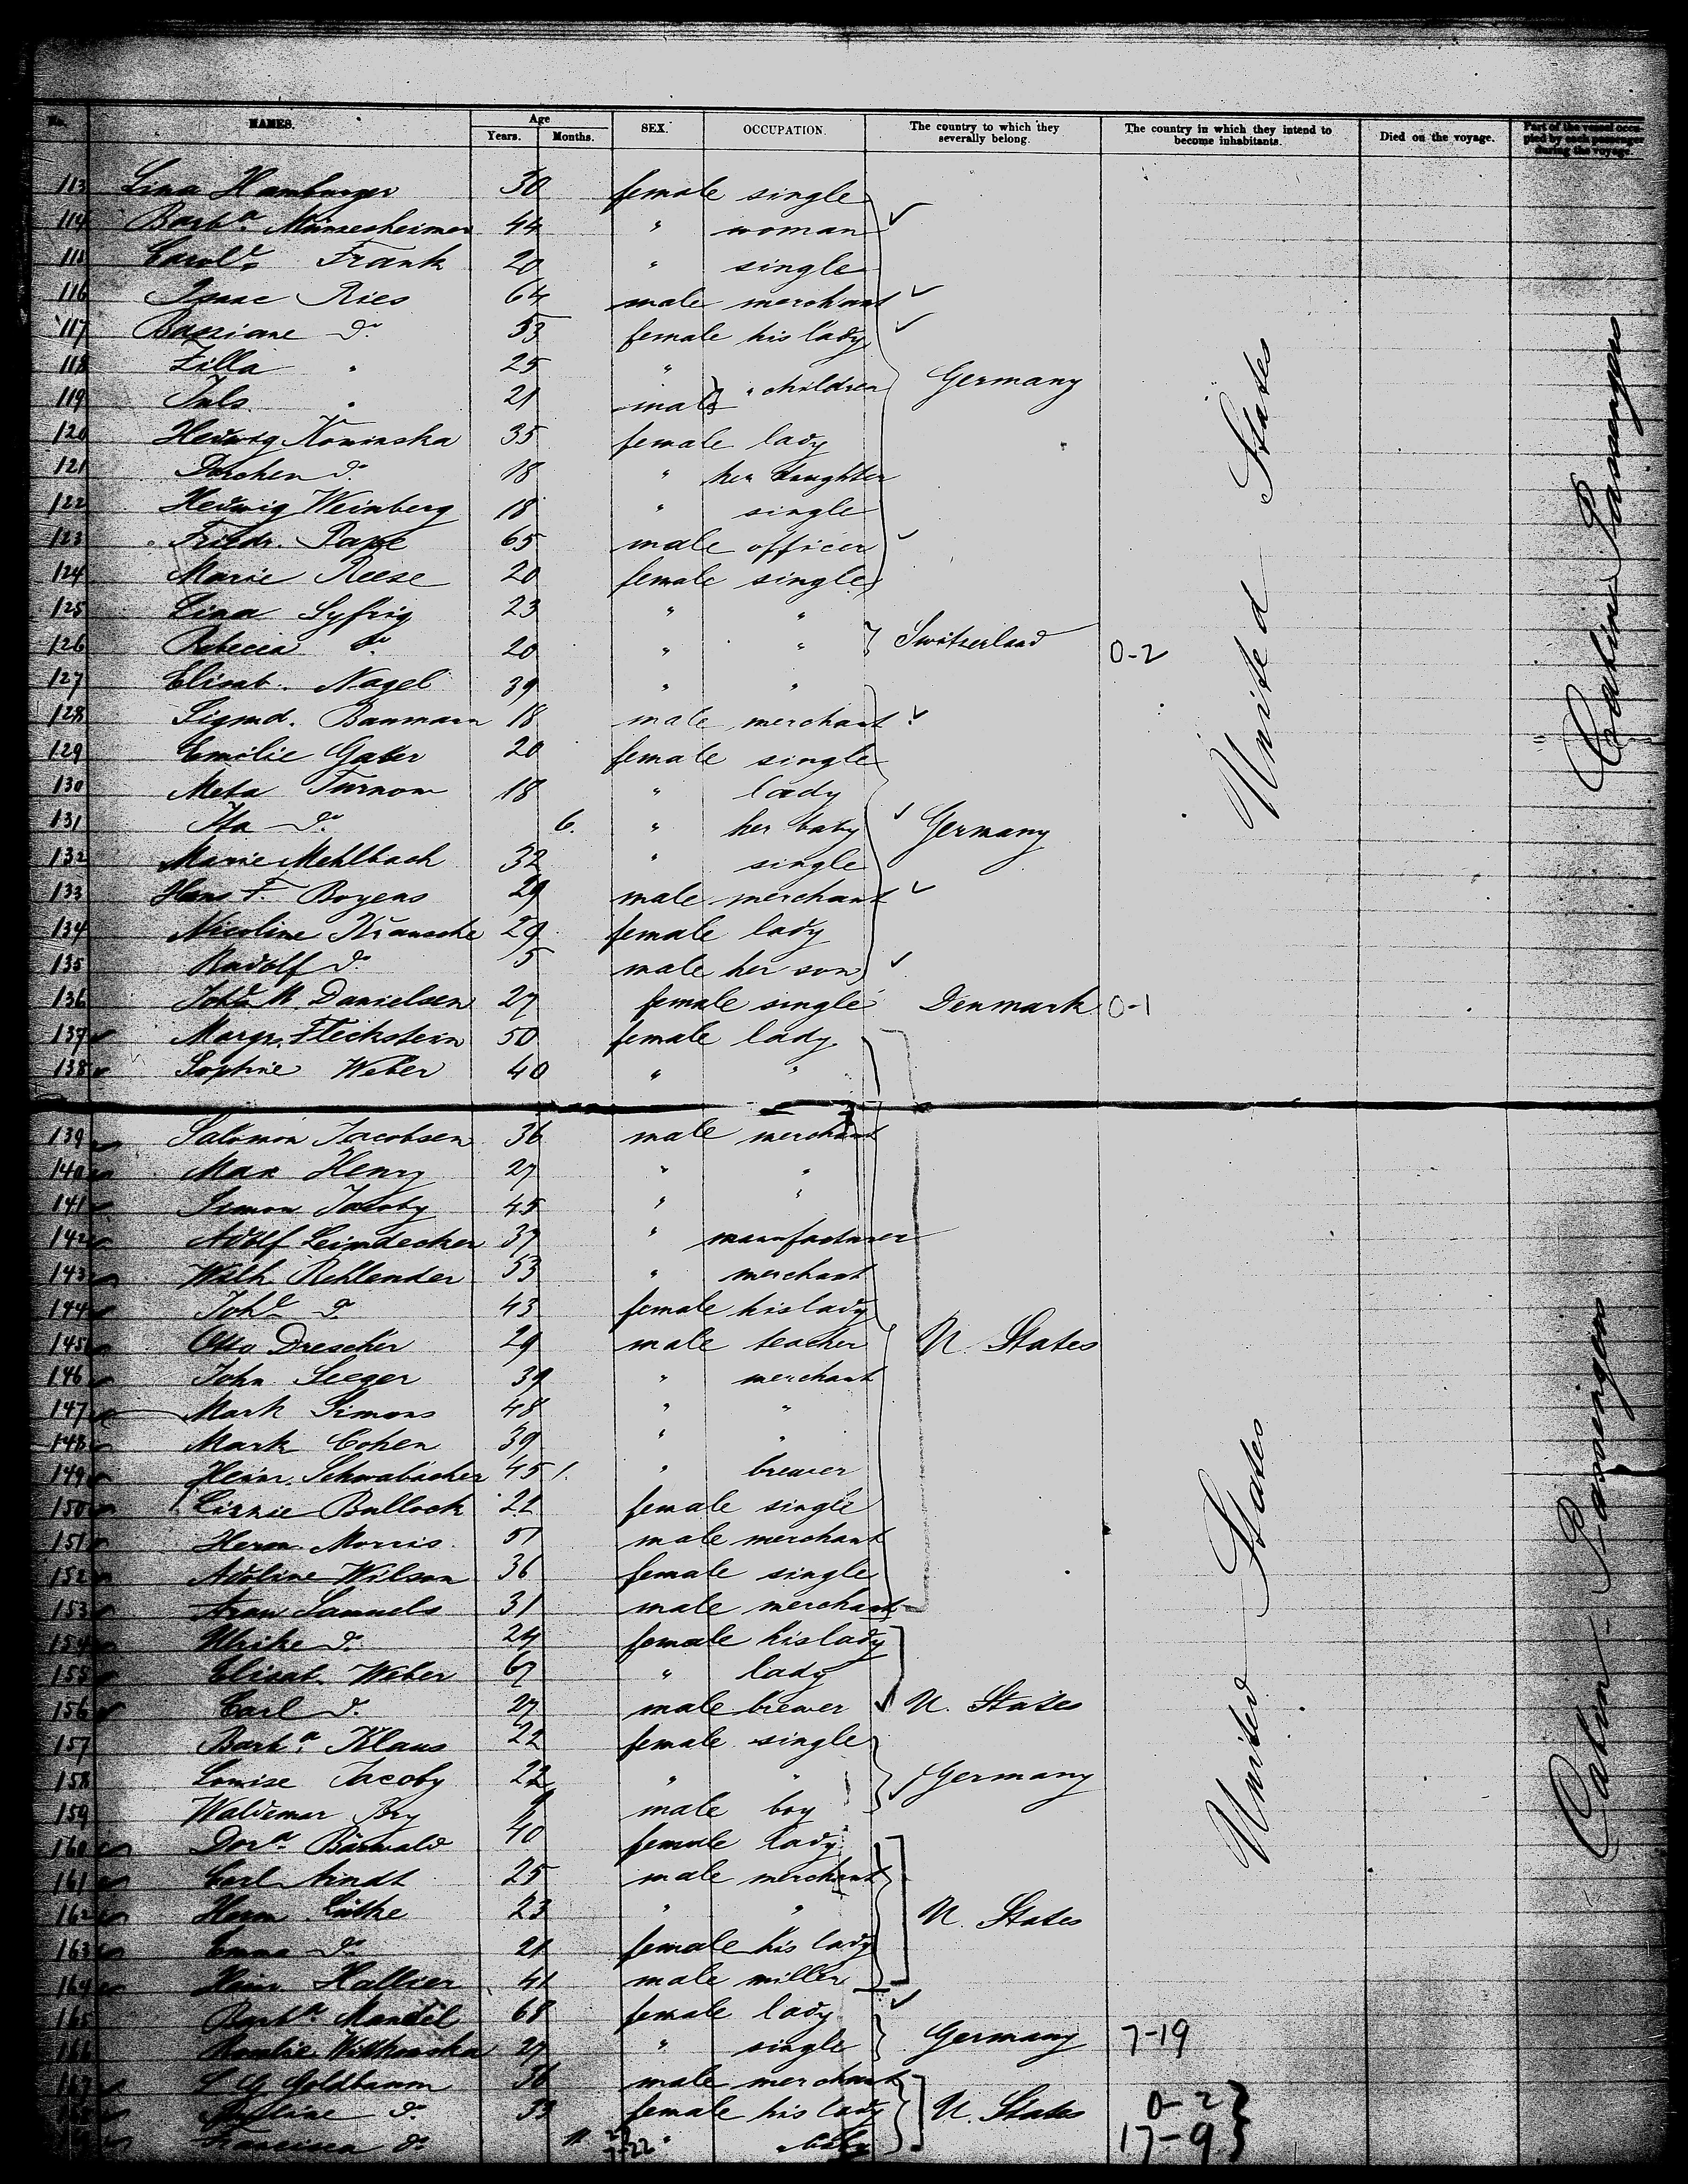 No. NAMES. Age Years. Months. SEX. OCCUPATION. The country to which they severally belong. The country in which they intend to become inhabitants. Died on the voyage. Part of the vessel occupied by each passenger during the voyage.
113 Lina Hamburger 30 female single
114 Barba. 44 " woman
115 Frank 20 " single
116 Isaac Ries 64 male merchant
117 do 53 female his lady
118 Zilla " 25 "
119 Juls. " 21 male " children Germany
120 Hedwig Kominska 35 female lady
121 Dorchen do 18 " her daughter
122 Hedwig Weinberg 18 " single
123 Friedr. Pape 65 male officer
124 Marie Reese 20 female single
125 Lina Syfrig 23 " "
126 Rebecca do 20 " " Switzerland 0-2
127 Elisab. Nagel 39 " "
128 Sigmd. Baumann 18 male merchant
129 Emilie Gaber 20 female single
130 Meta Turnow 18 " lady
131 Ita do 6. " her baby Germany
132 Marie Mehlbach 32 " single
133 Hans F. Boyens 29 male merchant
134 Nicoline Krausche 29 female lady
135 Rudolf do 5 male her son
136 M. Danielsen 27 female single Denmark 0-1
137 Margr. Fleckstein 50 female lady
138 Sophie Weber 40 " "
United States
Cabin Passengers
139 Salomon Jacobsen 36 male merchant
140 Max Henry 27 " "
141 Simon Jacoby 45 " "
142 Adolf Leindecker 37 " manufacturer
143 Wilh. Rehlender 53 " merchant
144 Johe do 43 female his lady
145 Otto Drescher 29 male teacher U. States
146 John Seeger 39 " merchant
147 Mark Simons 48 " "
148 Mark Cohen 39 " "
149 Heinr. Schwabacher 45 1. " brewer
150 Lizzie Bullock 22 female single
151 Herm. Morris 51 male merchant
152 Adeline Wilson 36 female single
153 Aron Samuels 31 male merchant
154 Ulrike do 24 female his lady
155 Elisab. Weber 67 " lady
156 Carl do 27 male brewer U. States
157 Barba. Klaus 22 female single
158 Louise Jacoby 22 " " Germany
159 Waldemar male boy
160 Dora Bärwald 40 female lady
161 Carl Arndt 25 male merchant
162 Herm Lüthe 23 " " U. States
163 Emma do 21 female his lady
164 Heinr. Hallier 41 male miller
165 Barba. Mandel 68 female lady
166 27 " single Germany 7-19
167 S G Goldbaum 36 male merchant
168 do 33 female his lady U. States 0-2
Francisca do 11 " baby 17-9
United States
Cabin Passengers